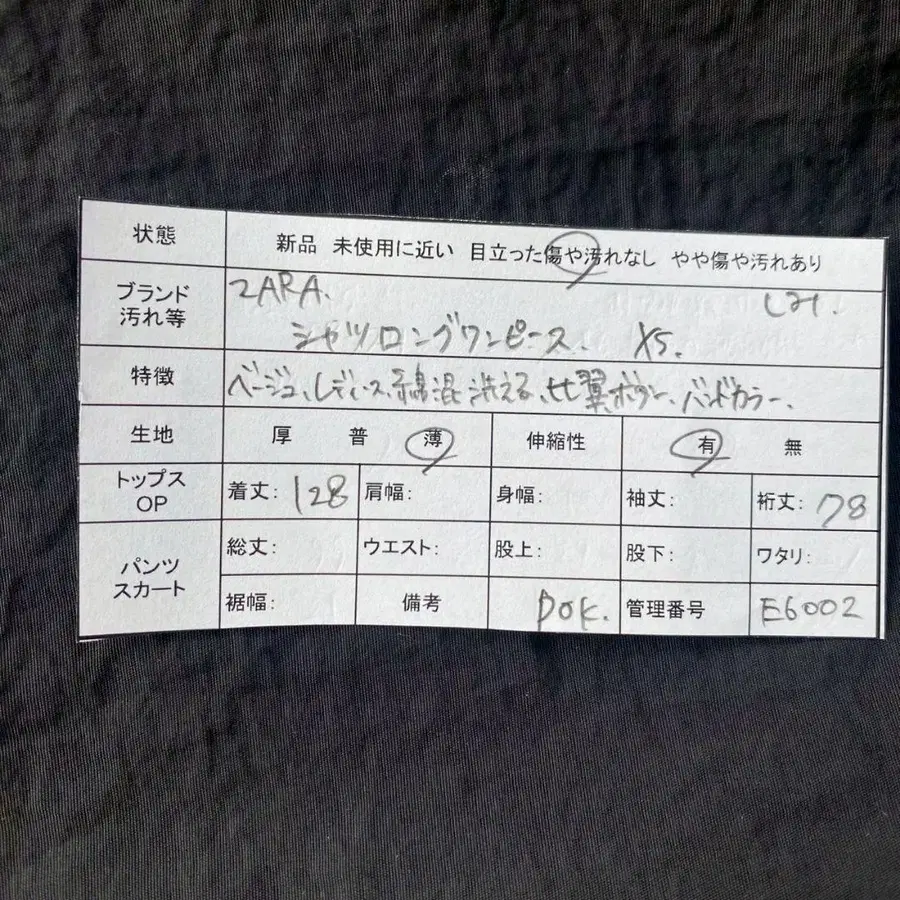 状態 新品 未使用に近い 目立った傷や汚れなし やや傷や汚れあり
ブランド 汚れ等 ZARA.
シャツロングワンピース. XS.
特徴 ベージュ、レディース、綿混、洗える、比翼ボタン、バンドカラー、
生地 厚 普 薄 伸縮性 有 無
トップス OP 着丈: 128 肩幅: 身幅: 袖丈: 裄丈: 78
パンツ スカート 総丈: ウエスト: 股上: 股下: ワタリ:
裾幅: 備考 POK. 管理番号 E6002